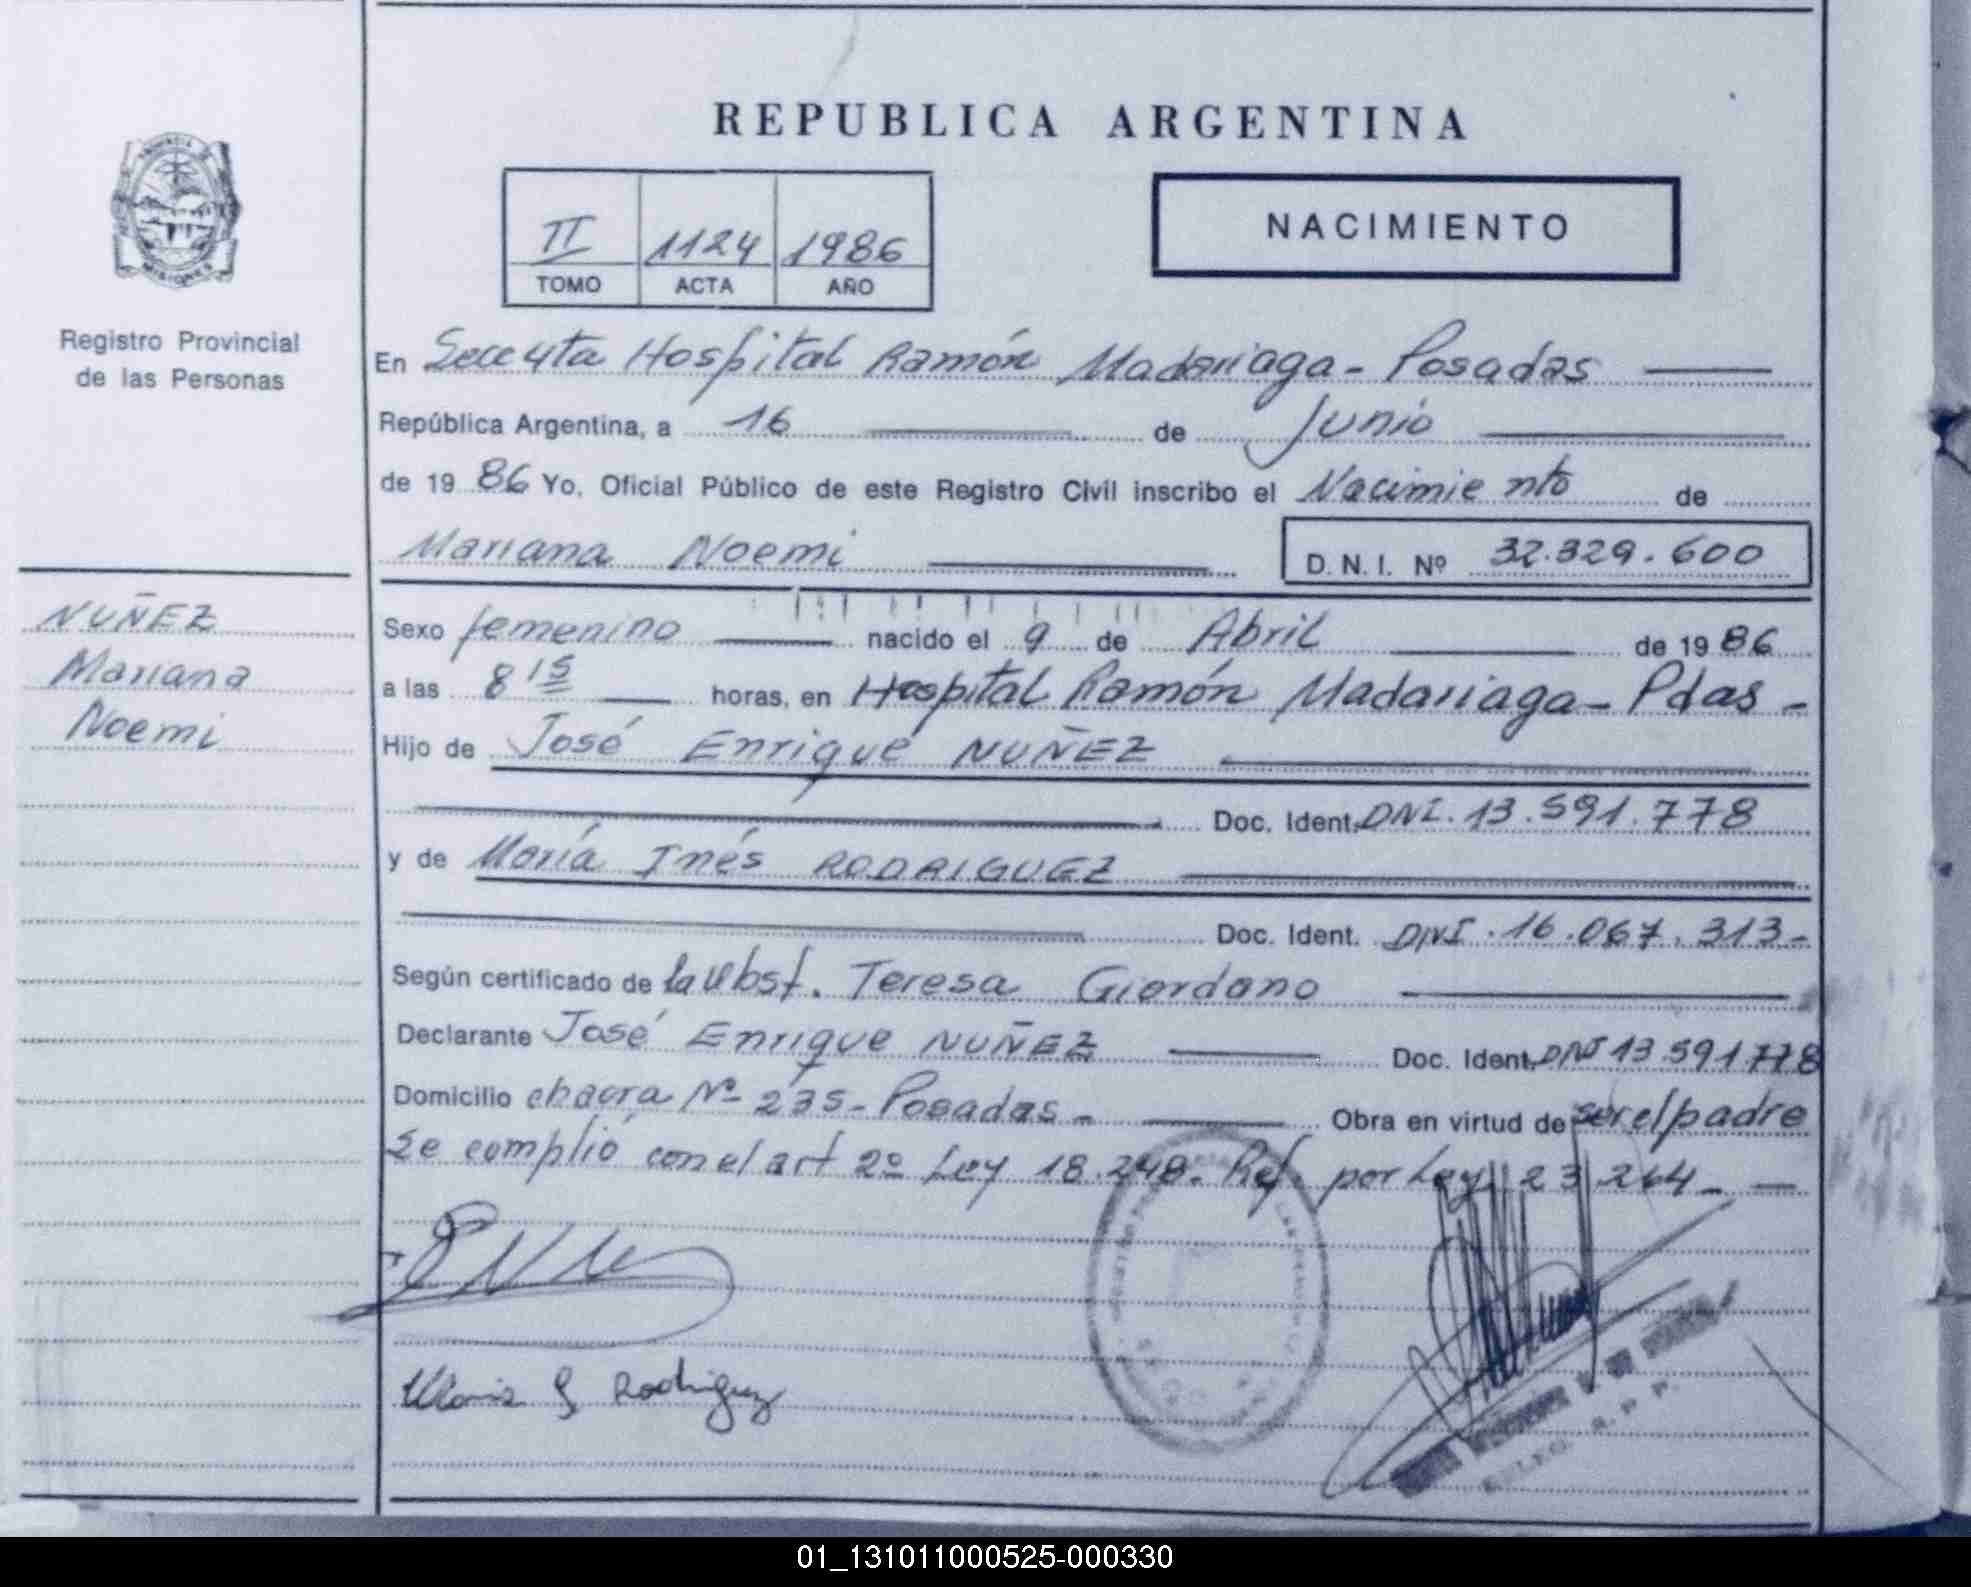 REPUBLICA ARGENTINA
II 1124 1986
TOMO ACTA AÑO
NACIMIENTO
MISIONES
Registro Provincial
de las Personas
NUÑEZ
Mariana
Noemi
En Hospital Ramón Madariaga - Posadas
República Argentina, a 16 de Junio
de 19 86 Yo, Oficial Público de este Registro Civil inscribo el Nacimiento de
Mariana Noemi D. N. I. Nº 32.329.600
Sexo femenino nacido el 9 de Abril de 19 86
a las 8 15 horas, en Hospital Ramón Madariaga - Pdas -
Hijo de José Enrique NUÑEZ
Doc. Ident. DNI. 13.591.778
y de María Inés RODRIGUEZ
Doc. Ident. DNI. 16.067.313-
Según certificado de la Obst. Teresa Giordano
Declarante José Enrique NUÑEZ Doc. Ident. DNI 13.591.778
Domicilio chacra Nº 235 - Posadas - Obra en virtud de ser el padre
Se complió con el art 2º Ley 18.248. Ref. por Ley 23.264 -
Maria I Rodriguez
01_131011000525-000330